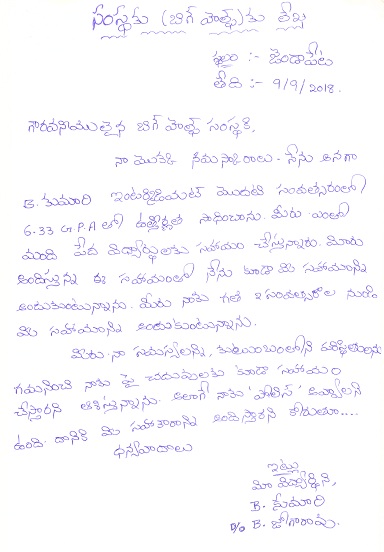 సంస్థకు (బిగ్ హెల్ప్) కు లేఖ
స్థలం :- జెండాపేట
తేది :- 9/9/2018.
గౌరవనీయులైన బిగ్ హెల్ప్ సంస్థకి,
నా యొక్క నమస్కారాలు. నేను అనగా
B. కుమారి ఇంటర్మీడియట్ మొదటి సంవత్సరంలో
6.33 G.P.A తో ఉత్తీర్ణత సాధించాను. మీరు ఎంతో
మంది పేద విద్యార్థులకు సహాయం చేస్తున్నారు. మీరు
అందిస్తున్న ఈ సహాయంతో నేను కూడా మీ సహాయాన్ని
అందుకుంటున్నాను. మీరు నాకు గత 2 సంవత్సరాల నుండి
మీ సహాయాన్ని అందుకుంటున్నాను.
మీరు నా సమస్యలన్ని, కుటుంబంలోని పరిస్థితులను
గమనించి నాకు పై చదువులకు కూడా సహాయం
చేస్తారని ఆశిస్తున్నాను. అలాగే నాకు 'పోలీస్' అవ్వాలని
ఉంది. దానికి మీ సహకారాన్ని అందిస్తారని కోరుతూ....
ధన్యవాదాలు
ఇట్లు
మీ విద్యార్థిని,
B. కుమారి
D/o B. జోగారావు.